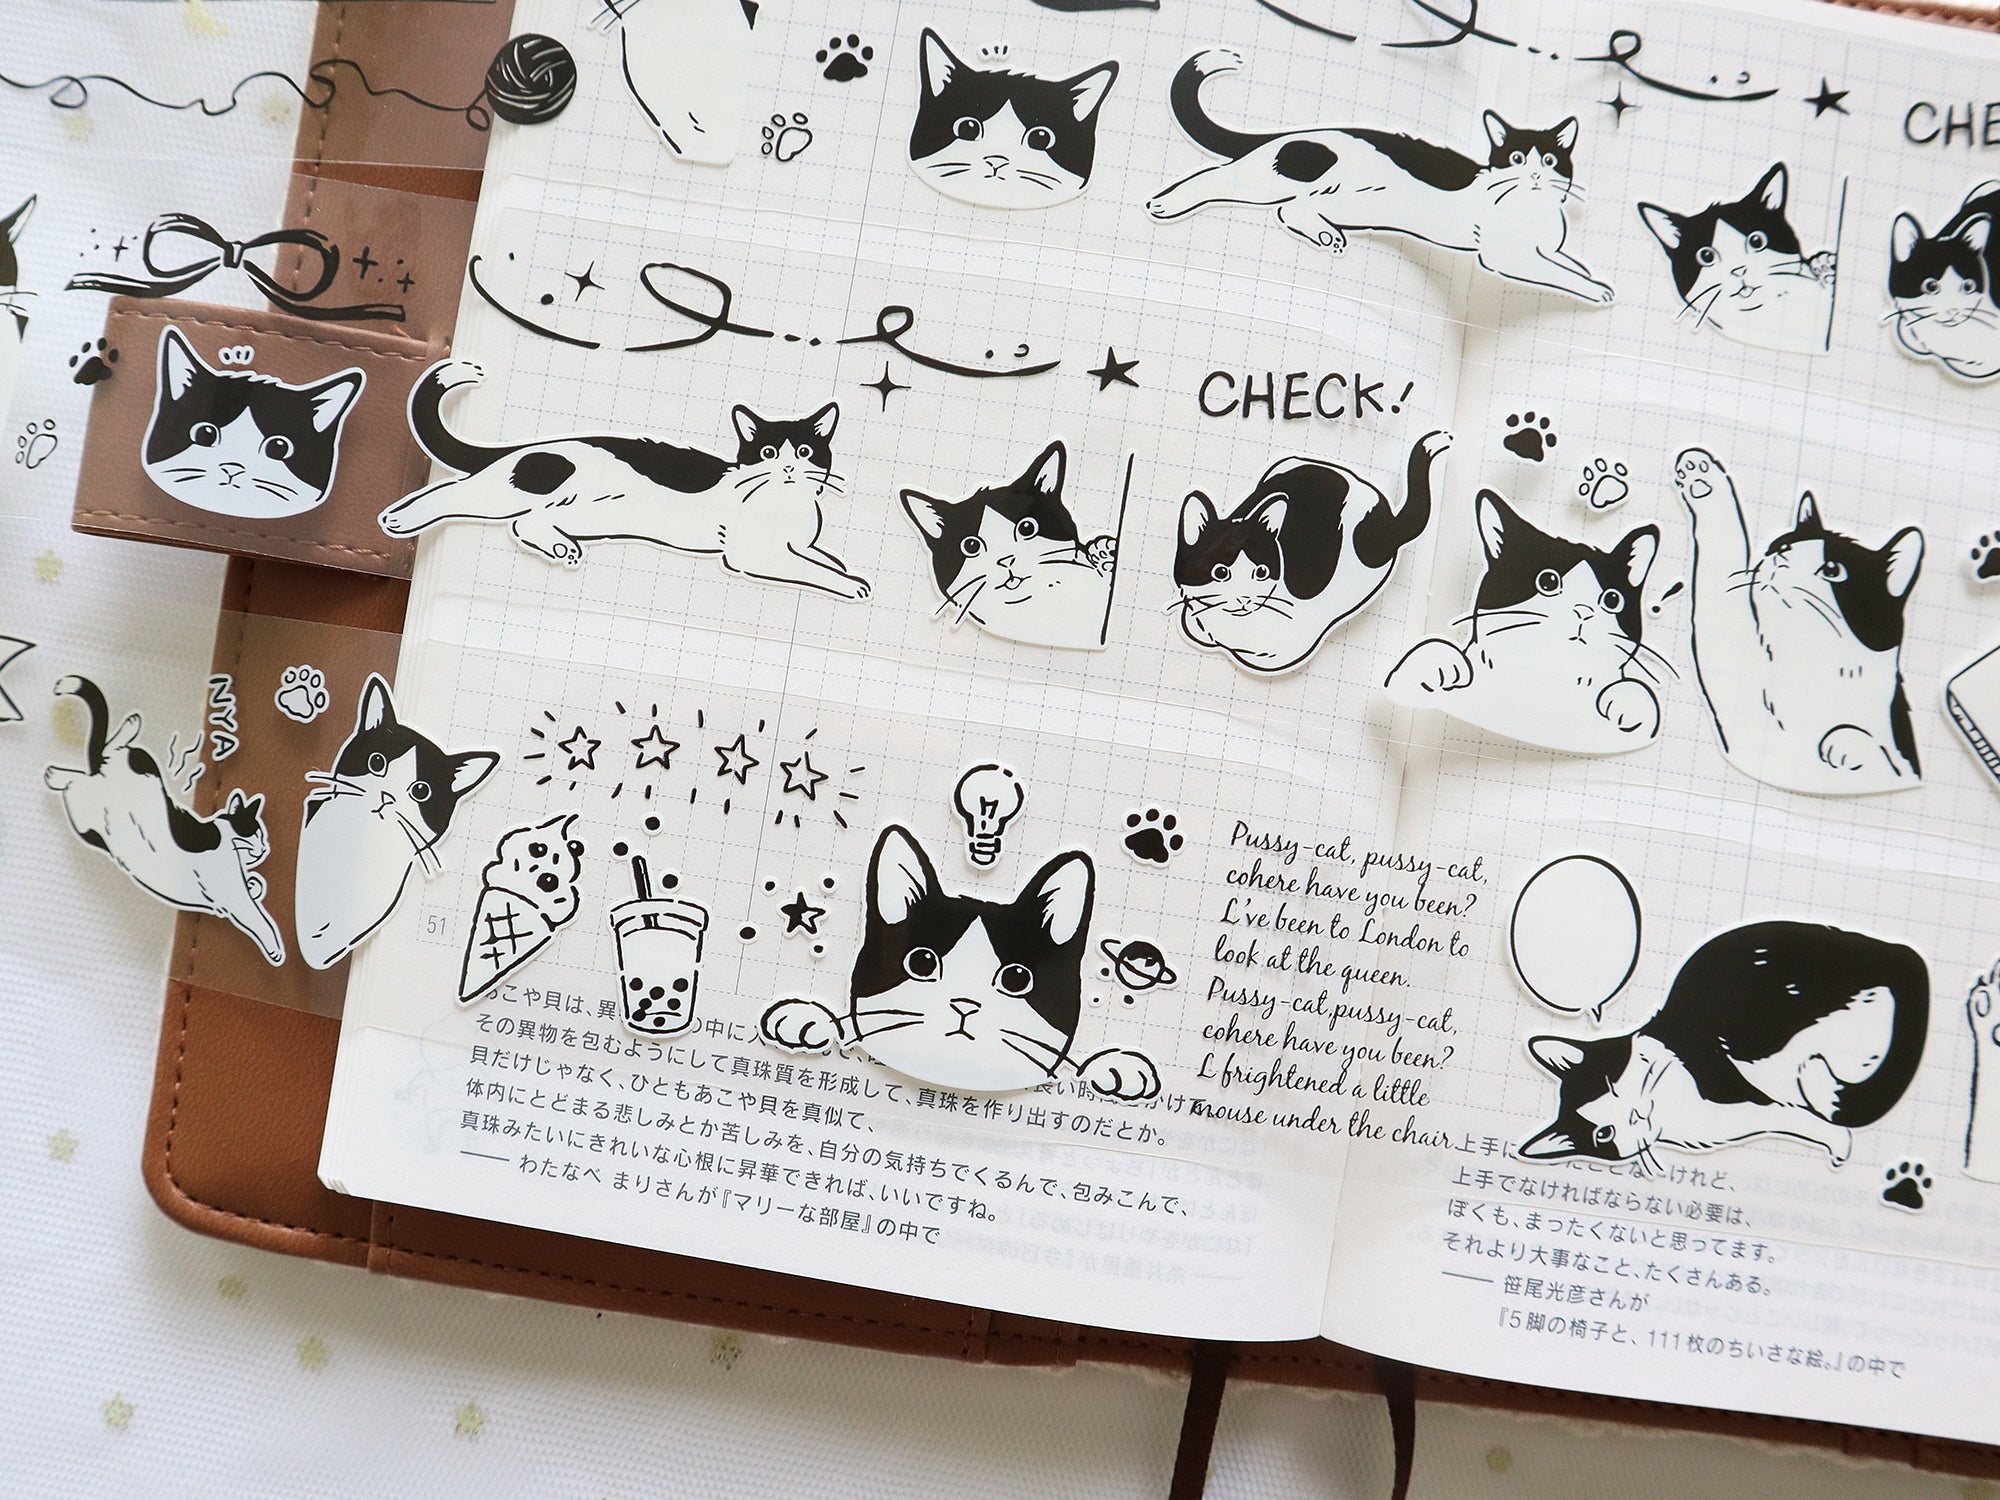 CHE
CHECK!
NYA
Pussy-cat, pussy-cat,
cohere have you been?
L've been to London to
look at the queen.
Pussy-cat,pussy-cat,
cohere have you been?
L frightened a little
mouse under the chair.
51
あこや貝は、異 の中に入
その異物を包むようにして真珠質を形成して、 長い時間をかけて
貝だけじゃなく、ひともあこや貝を真似て、 真珠を作り出すのだとか。
体内にとどまる悲しみとか苦しみを、自分の気持ちでくるんで、包みこんで、
真珠みたいにきれいな心根に昇華できれば、いいですね。
—— わたなべ まりさんが『マリーな部屋』の中で
上手に けれど、
上手でなければならない必要は、
ぼくも、まったくないと思ってます。
それより大事なこと、たくさんある。
—— 笹尾光彦さんが
『5脚の椅子と、111枚のちいさな絵。』の中で